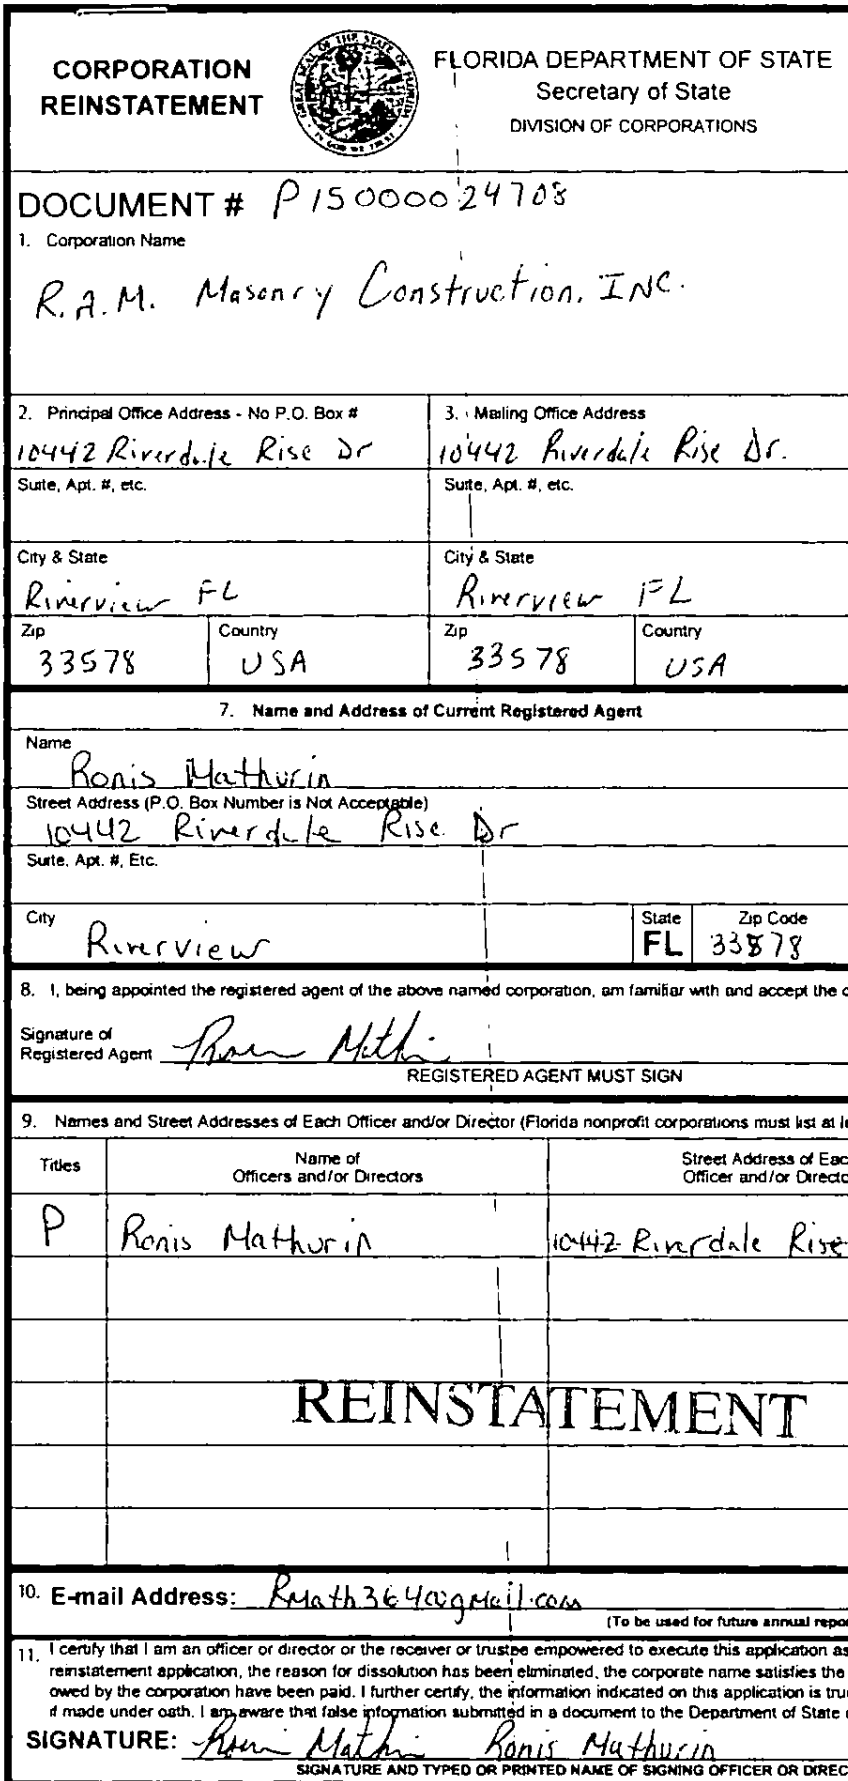 CORPORATION
REINSTATEMENT
FLORIDA DEPARTMENT OF STATE
Secretary of State
DIVISION OF CORPORATIONS
DOCUMENT # P15000024708
1. Corporation Name
R.A.M. Masonry Construction, INC.
2. Principal Office Address - No P.O. Box #
10442 Riverdale Rise Dr
3. Mailing Office Address
10442 Riverdale Rise Dr.
Suite, Apt. #, etc.
Suite, Apt. #, etc.
City & State
Riverview FL
City & State
Riverview FL
Zip
33578
Country
USA
Zip
33578
Country
USA
7. Name and Address of Current Registered Agent
Name
Ronis Mathurin
Street Address (P.O. Box Number is Not Acceptable)
10442 Riverdale Rise Dr
Suite, Apt. #, Etc.
City
Riverview
State
FL
Zip Code
33578
8. I, being appointed the registered agent of the above named corporation, am familiar with and accept the
Signature of
Registered Agent
REGISTERED AGENT MUST SIGN
9. Names and Street Addresses of Each Officer and/or Director (Florida nonprofit corporations must list at
Titles
Name of
Officers and/or Directors
Street Address of
Officer and/or
P Ronis Mathurin 10442 Riverdale Rise
REINSTATEMENT
10. E-mail Address: Rmath364@gmail.com
(To be used for future annual
11. I certify that I am an officer or director or the receiver or trustee empowered to execute this application as
reinstatement application, the reason for dissolution has been eliminated, the corporate name satisfies the
owed by the corporation have been paid. I further certify, the information indicated on this application is
if made under oath. I am aware that false information submitted in a document to the Department of State
SIGNATURE: Ronis Mathurin
SIGNATURE AND TYPED OR PRINTED NAME OF SIGNING OFFICER OR